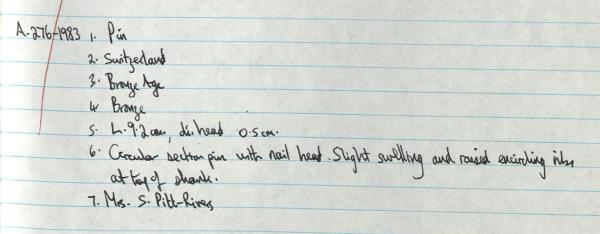 A.276-1983 1. Pin
2. Switzerland
3. Bronze Age
4. Bronze
5. L. 9.2 cm, di. head 0.5 cm.
6. Circular section pin with nail head. Slight swelling and raised encircling ribs
at top of shank.
7. Mrs. S. Pitt-Rivers